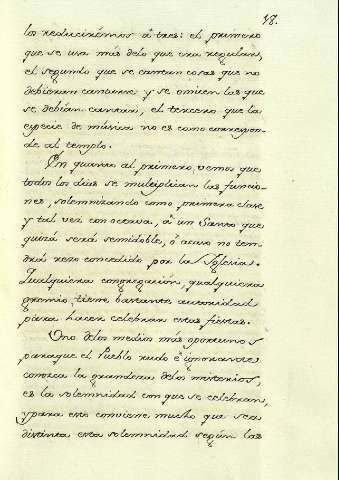 18.
los reducirémos á tres: el primero
que se usa más delo que era regular,
el segundo que se cantan cosas que no
debieran cantarse y se omiten las que
se debían cantar, el tercero que la
especie de música no es como correspon-
de al templo.
En quanto al primero, vemos que
todos los dias se multiplican las funcio-
nes, solemnizando como primera clase
y tal vez con octava, á un Santo que
quizá será semidoble, ó acaso no ten-
drá rezo concedido por la Iglesia.
Qualquiera congregación, qualquiera
gremio, tiene bastante autoridad
para hacer celebrar estas fiestas.
Uno delos medios más oportunos
paraque el Pueblo rudo é ignorante
conozca la grandeza delos misterios,
es la solemnidad con que se celebran,
y para esto conviene mucho que sea
distinta esta solemnidad según las